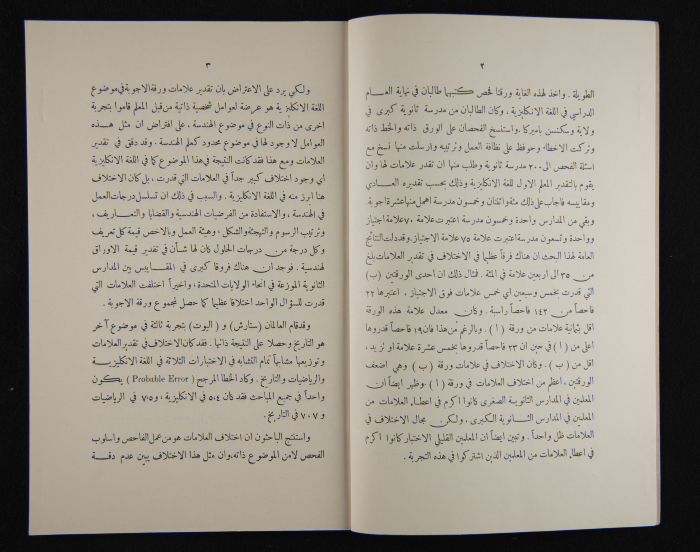 ٢
الطويلة . واخذ لهذه الغاية ورقتا فحص كتبهما طالبان في نهاية العام
الدراسي في اللغة الانكليزية . وكان الطالبان من مدرسة ثانوية كبرى في
ولاية وسكنسن باميركا . واستنسخ الفحصان على الورق ذاته والخط ذاته
وتركت الاخطاء وحوفظ على نظافة العمل وترتيبه وارسلت منها نسخ مع
اسئلة الفحص الى ٢٠٠ مدرسة ثانوية وطلب منها ان تقدر علامات لها وان
يقوم بالتقدير المعلم الاول للغة الانكليزية وذلك بحسب تقديره العادي
ومقاييسه فاجاب على ذلك مئة واثنتان وخمسون مدرسة اهمل منها عشرة اجوبة .
وبقي من المدارس واحدة وخمسون مدرسة اعتبرت علامة ٧٠ علامة اجتياز
وواحدة وتسعون مدرسة اعتبرت علامة ٧٥ علامة الاجتياز . وقد دلت النتائج
العامة لهذا البحث ان هناك فرقاً عظيماً في الاختلاف في تقدير العلامات بلغ
من ٣٥ الى اربعين علامة في المئة . فمثال ذلك ان احدى الورقتين ( ب )
التي قدرت بخمس وسبعين اي خمس علامات فوق الاجتياز ، اعتبرها ٢٢
فاحصاً من ١٤٢ فاحصاً راسبة . وكان معدل علامة هذه الورقة
اقل بثمانية علامات من ورقة ( ا ) . وبالرغم من هذا فان ١٩ فاحصاً قدروها
اعلى من ( ا ) في حين ان ٢٣ فاحصاً قدروها بخمس عشرة علامة او تزيد ،
اقل من ( ب ) . وكان الاختلاف في علامات ورقة ( ب ) وهي اضعف
الورقتين ، اعظم من اختلاف العلامات في ورقة ( ا ) وظهر ايضاً ان
المعلمين في المدارس الثانوية الصغرى كانوا اكرم في اعطاء العلامات من
المعلمين في المدارس الثانوية الكبرى ، ولكن مجال الاختلاف في
العلامات ظل واحداً . وتبين ايضاً ان المعلمين القليلي الاختبار كانوا اكرم
في اعطاء العلامات من المعلمين الذين اشتركوا في هذه التجربة .
٣
ولكي يرد على الاعتراض بان تقدير علامات ورقة الاجوبة في موضوع
اللغة الانكليزية هو عرضة لعوامل شخصية ذاتية من قبل المعلم قاموا بتجربة
اخرى من ذات النوع في موضوع الهندسة ، على افتراض ان مثل هذه
العوامل لا وجود لها في موضوع محدود كعلم الهندسة . وقد دقق في تقدير
العلامات ومع هذا فقد كانت النتيجة في هذا الموضوع كما في اللغة الانكليزية
اي وجود اختلاف كبير جداً في العلامات التي قدرت ، بل كان الاختلاف
هنا ابرز منه في اللغة الانكليزية . والسبب في ذلك ان تسلسل درجات العمل
في الهندسة ، والاستفادة من الفرضيات الهندسية والقضايا والتعاريف ،
وترتيب الرسوم والتهيئة والشكل ، وهيئة العمل وبالاخص قيمة كل تعريف
وكل درجة من درجات الحلول كان لها شأن في تقدير قيمة الاوراق
لهندسية . فوجد ان هناك فروقا كبرى في المقاييس بين المدارس
الثانوية الموزعة في انحاء الولايات المتحدة ، واخيراً اختلفت العلامات التي
قدرت للسؤال الواحد اختلافا عظيما كما حصل لمجموع ورقة الاجوبة .
وقد قام العالمان ( ستارش ) و ( اليوت ) بتجربة ثالثة في موضوع آخر
هو التاريخ وحصلا على النتيجة ذاتها . فقد كان الاختلاف في تقدير العلامات
وتوزيعها مشابهاً تمام التشابه في الاختبارات الثلاثة في اللغة الانكليزية
والرياضيات والتاريخ . وكاد الخطا المرجح ( Probable Error ) يكون
واحداً في جميع المباحث فقد كان ٥،٤ في الانكليزية ، و ٧،٥ في الرياضيات
و ٧،٧ في التاريخ .
واستنتج الباحثون ان اختلاف العلامات هو من عمل الفاحص واسلوب
الفحص لا من الموضوع ذاته ، وان مثل هذا الاختلاف يبين عدم دقة